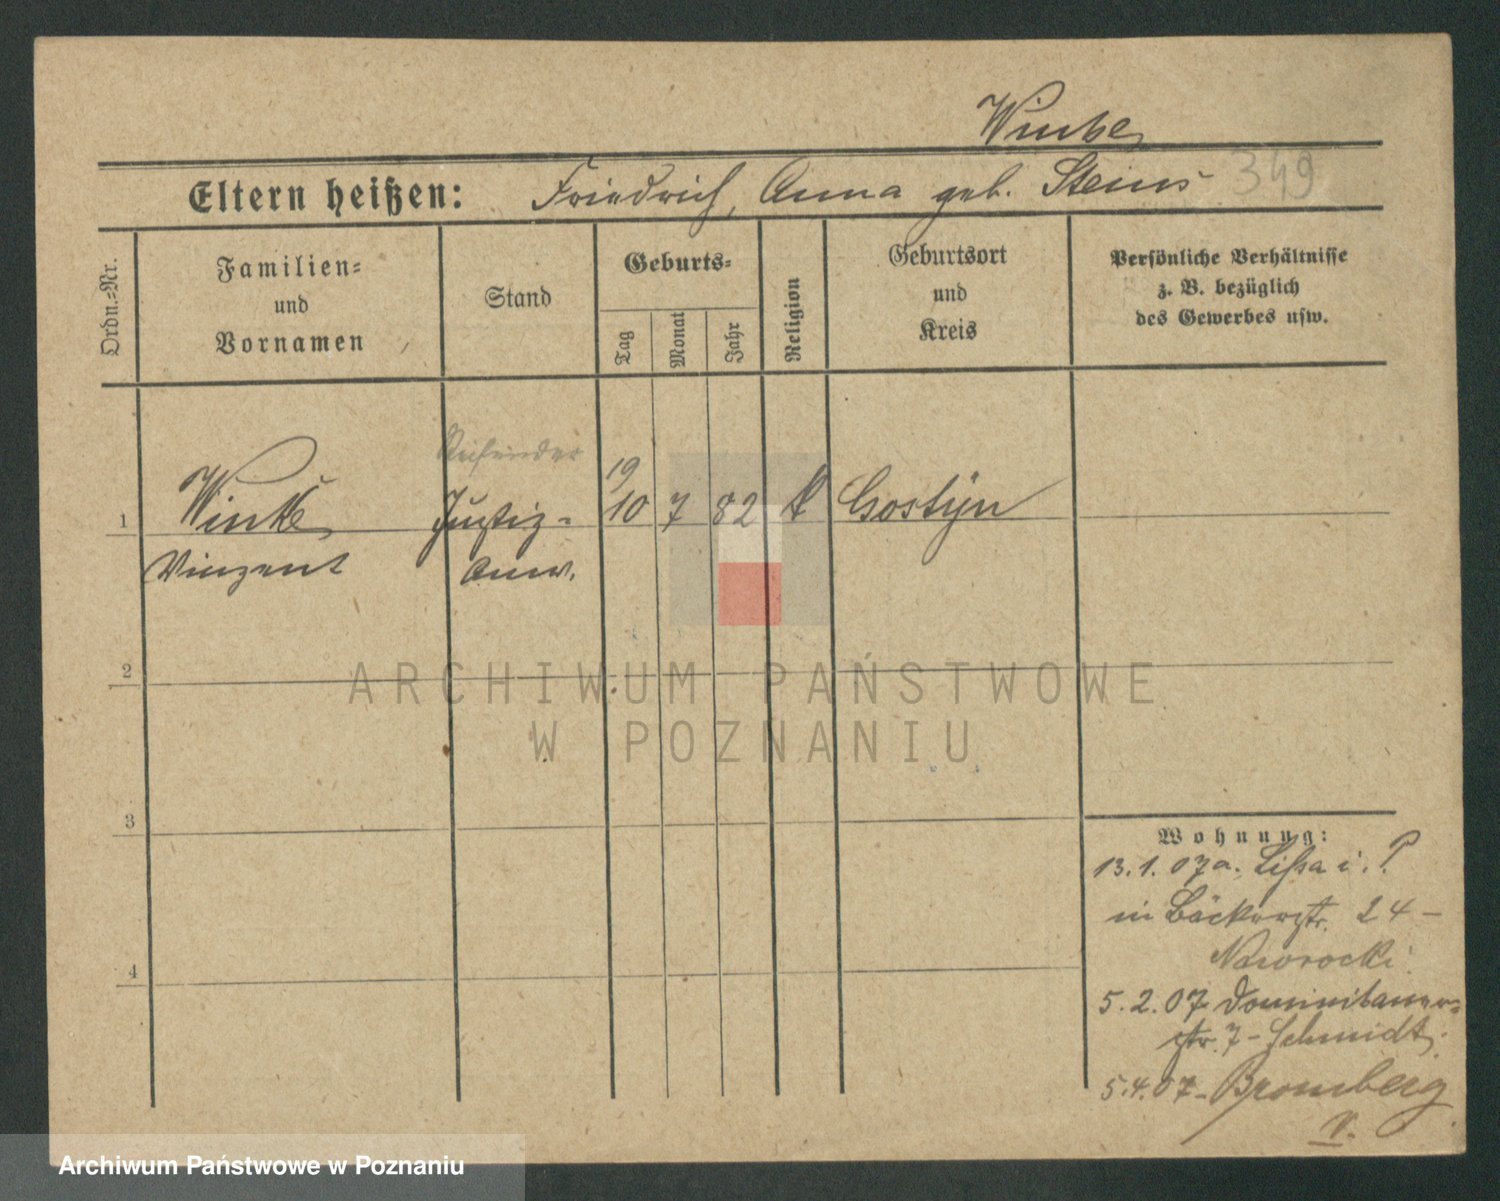 Winke
Eltern heißen: Friedrich, Anna geb. Steins 349
Ordn.=Nr.
Familien=
und
Vornamen
Stand
Geburts=
Tag
Monat
Jahr
Religion
Geburtsort
und
Kreis
Persönliche Verhältnisse
z. B. bezüglich
des Gewerbes usw.
Reisender
19
1 Winke Justiz- 10 7 82 k Gostÿn
Vinzent Anw.
2
ARCHIWUM PAŃSTWOWE
W POZNANIU
3
Wohnung:
13.1.07 a. Lissa i. P.
in Bäckerstr. 24 -
Nawrocki
4
5.2.07 Dominikaner-
str. 7 - Schmidt.
5.4.07 - Bromberg
V.
Archiwum Państwowe w Poznaniu